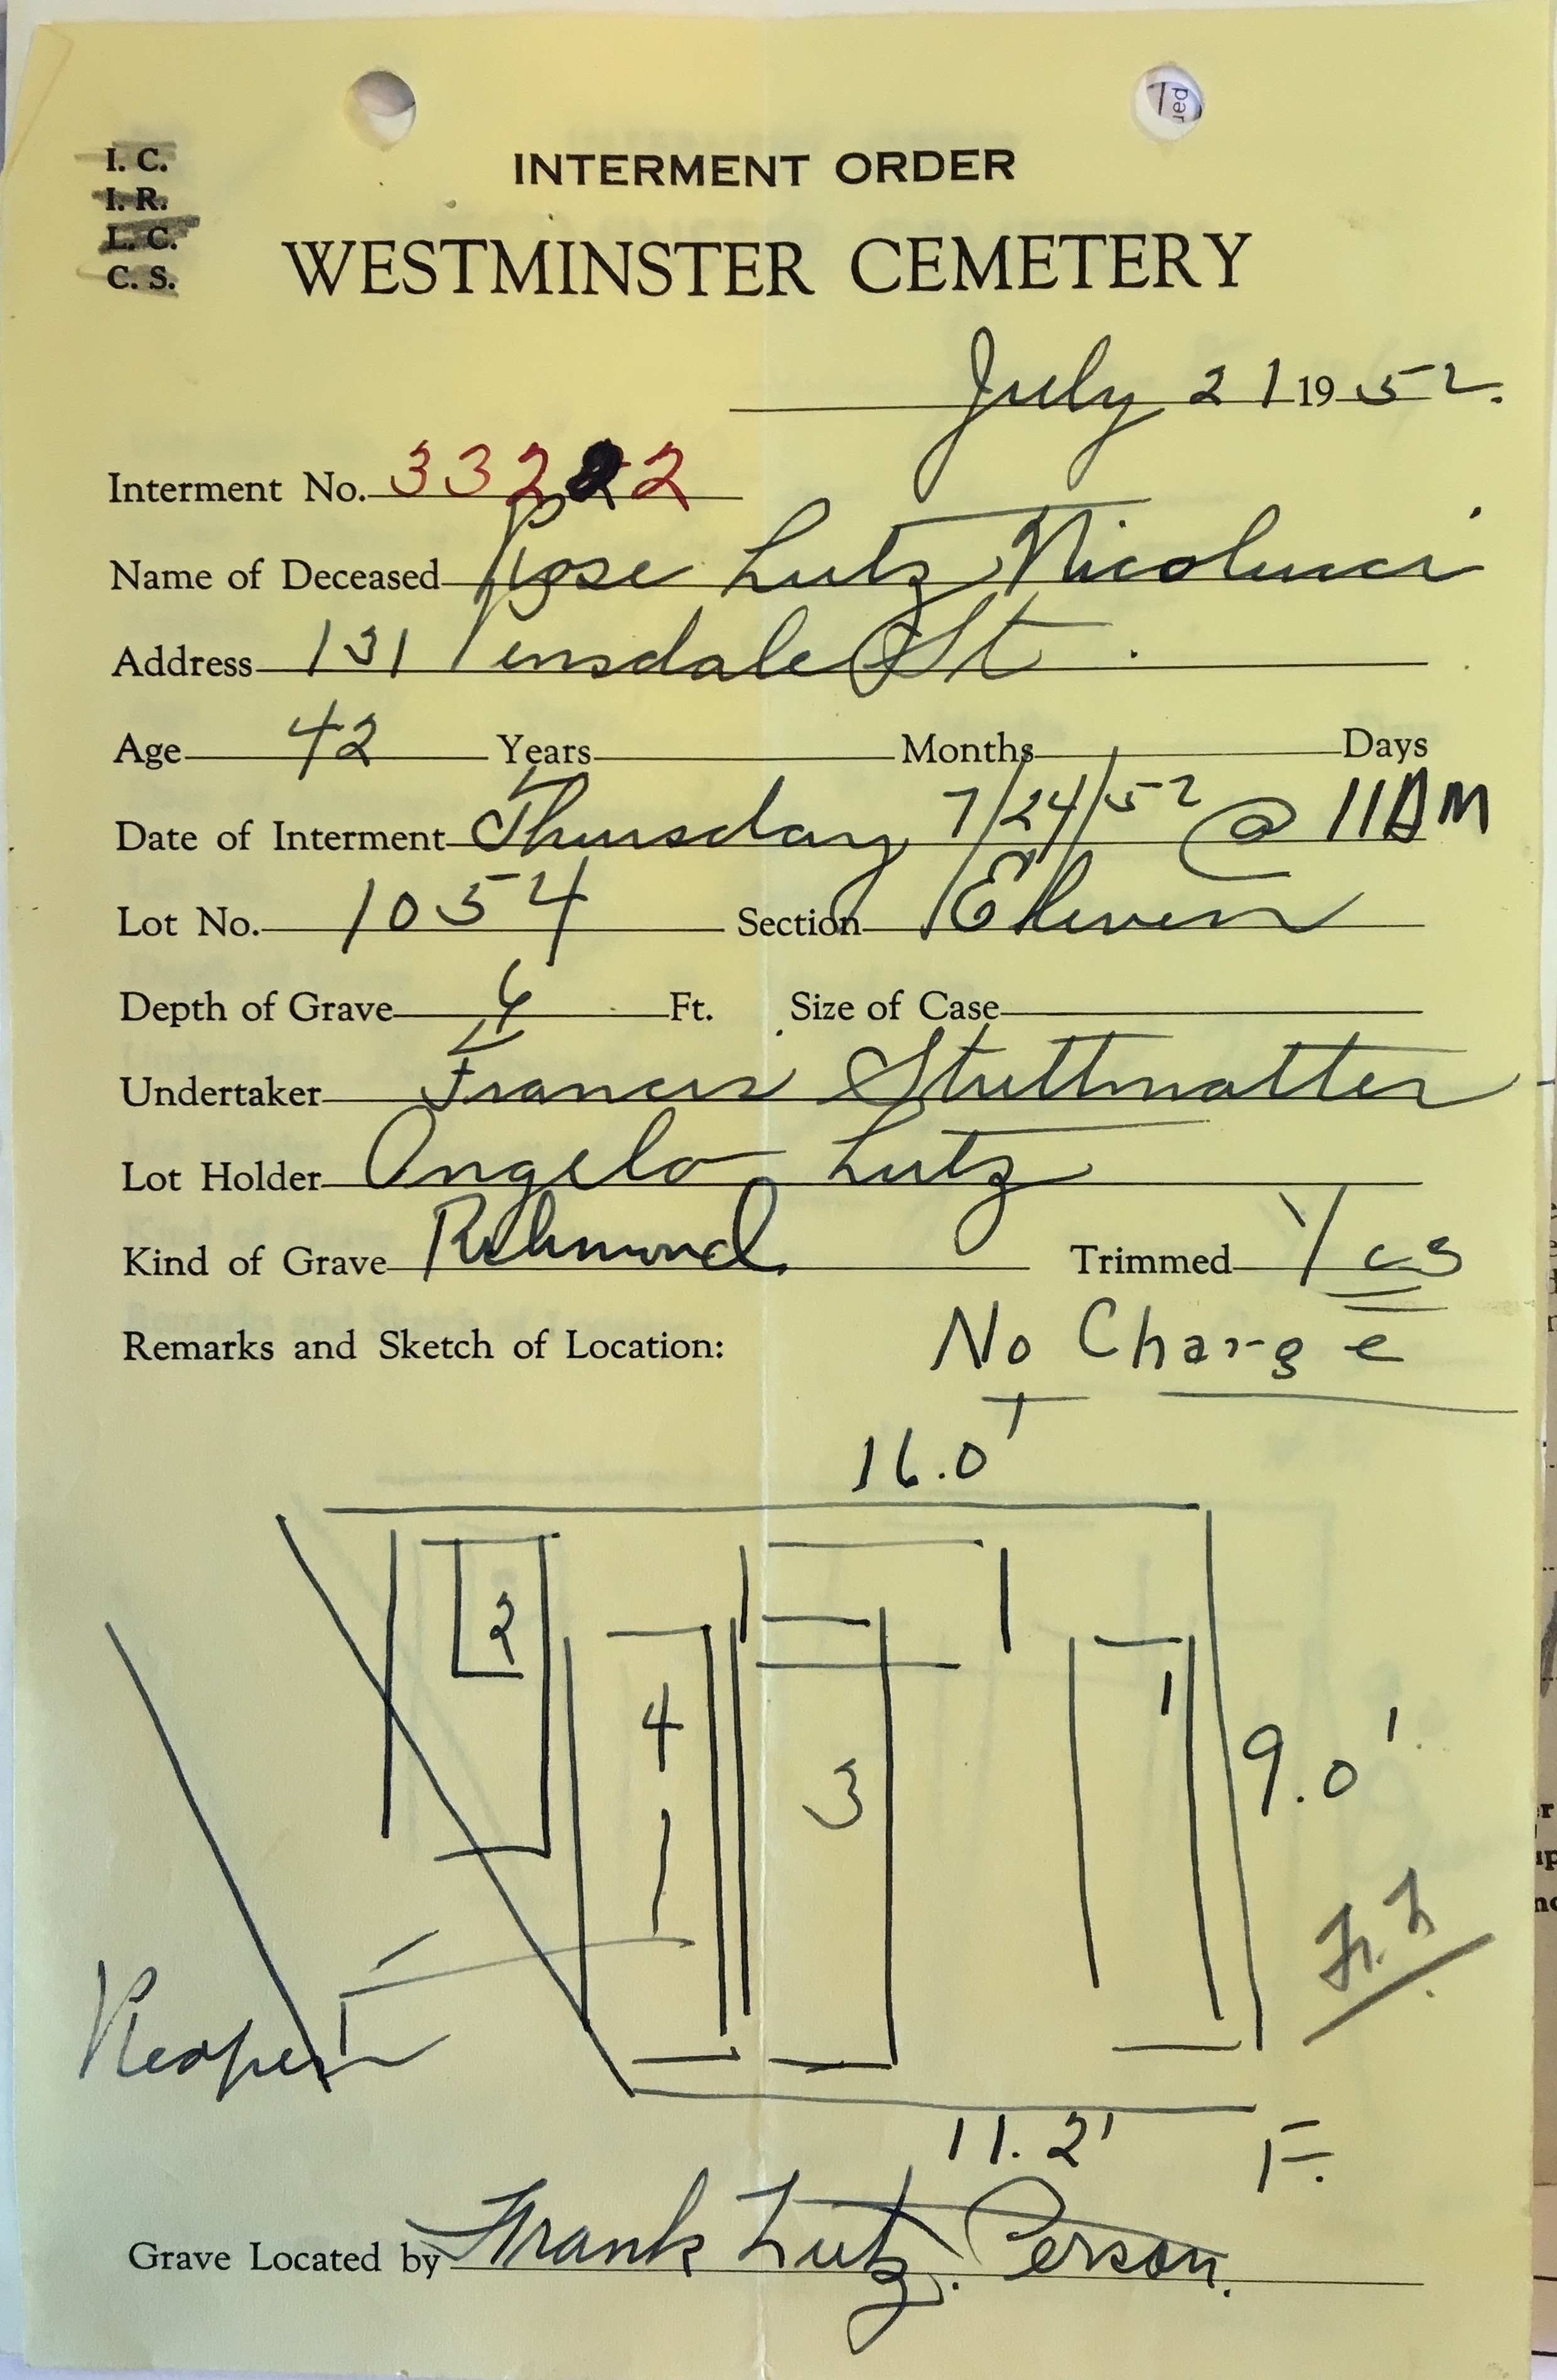 I. C.
I. R.
L. C.
C. S.
INTERMENT ORDER
WESTMINSTER CEMETERY
July 21 1952.
Interment No. 33222
Name of Deceased Rose Lutz Nicolucci
Address 131 Pensdale St.
Age 42 Years Months Days
Date of Interment Thursday 7/24/52 @ 11AM
Lot No. 1054 Section Eleven
Depth of Grave 6 Ft. Size of Case
Undertaker Francis Stuttmatter
Lot Holder Angelo Lutz
Kind of Grave Richmond Trimmed Yes
Remarks and Sketch of Location: No Charge
16.0'
2
4
1
3
9.0'
Reopen
11.2'
F.
Grave Located by Frank Lutz. Person.